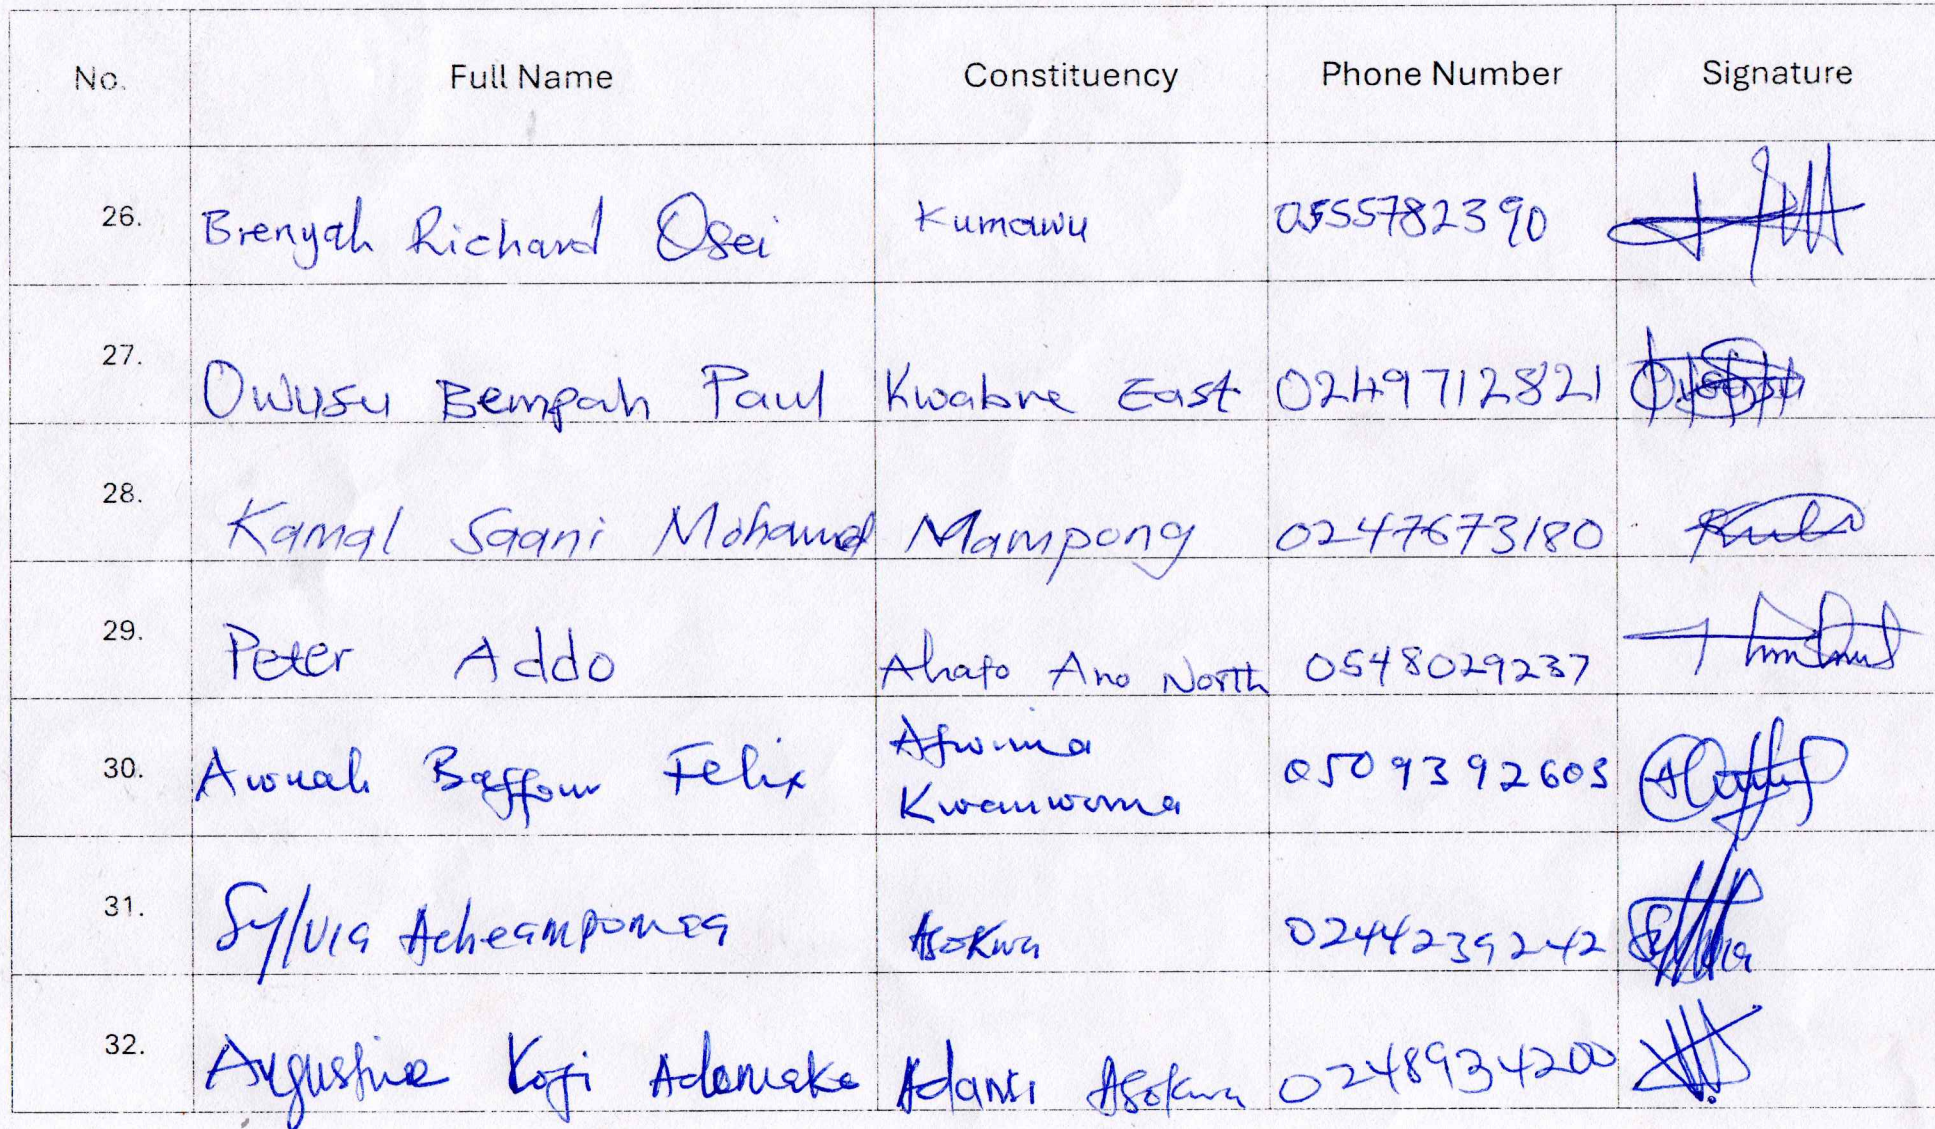 No. Full Name Constituency Phone Number Signature
26. Brenyah Richard Osei Kumawu 0555782390
27. Owusu Bempah Paul Kwabre East 0249712821
28. Kamal Saani Mohamed Mampong 0247673180
29. Peter Addo Ahafo Ano North 0548029237
30. Awuah Baffour Felix Atwima Kwanwoma 0509392603
31. Sylvia Acheampomaa Asokwa 0244239242
32. Augustine Kofi Adomako Adansi Asokwa 0248934200